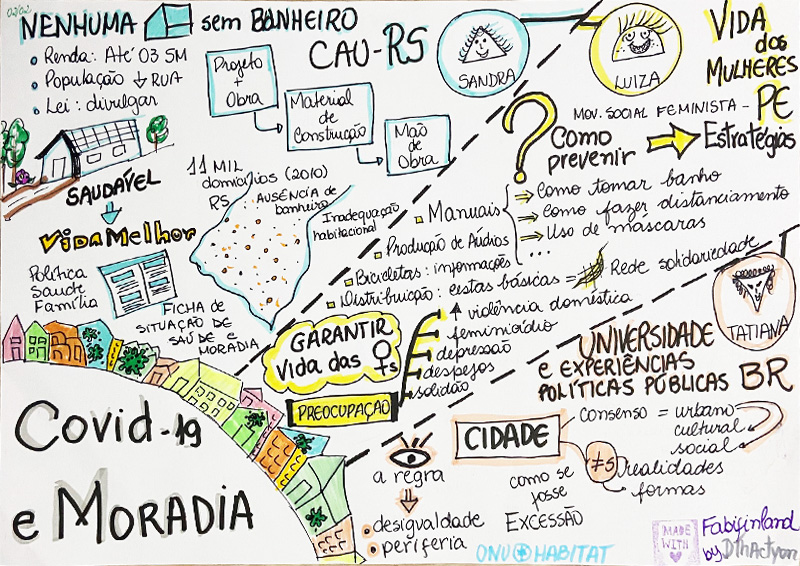 02/02
NENHUMA sem BANHEIRO
Renda: Até 03 SM
População ↓ RUA
Lei: divulgar
SAUDÁVEL
Vida Melhor
Política
Saúde
Família
FICHA de
SITUAÇÃO DE
SAÚDE e MORADIA
CAU-RS
Projeto
+
Obra
Material
de
Construção
Mão
de
Obra
11 MIL
domicílios (2010)
RS
AUSÊNCIA de
banheiro
Inadequação
habitacional
SANDRA
LUIZA
VIDA
dos
MULHERES
PE
MOV. SOCIAL FEMINISTA -
? Como
prevenir
Estratégias
Manuais
Como tomar banho
Como fazer distanciamento
Uso de máscaras
...
Produção de Áudios
Bicicletas: informações
Distribuição: cestas básicas = Rede solidariedade
GARANTIR
Vida das ♀s
PREOCUPAÇÃO
↑ violência doméstica
feminicídio
depressão
despejos
solidão
TATIANA
UNIVERSIDADE
e EXPERIÊNCIAS
POLÍTICAS PÚBLICAS BR
CIDADE
consenso = urbano
cultural
social
≠s realidades
formas
a regra
desigualdade
periferia
como se
fosse
EXCESSÃO
Covid-19
e MORADIA
ONU HABITAT
MADE
WITH
Fabifinland
by DthActyon